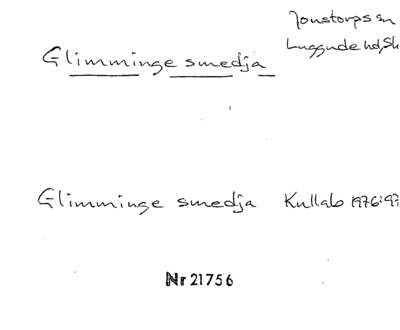 Jonstorps sn
Luggude hd, Sk
Glimminge smedja
Glimminge smedja Kullabo 1976:97
Nr 21756